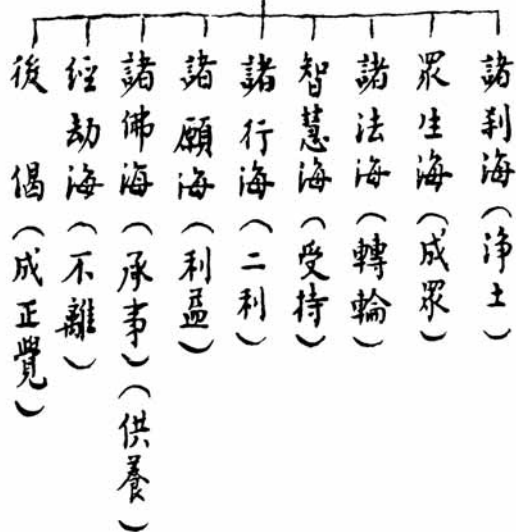 諸刹海(淨土)
眾生海(成眾)
諸法海(轉輪)
智慧海(受持)
諸行海(二利)
諸願海(利益)
諸佛海(承事)(供養)
經劫海(不離)
後偈(成正覺)